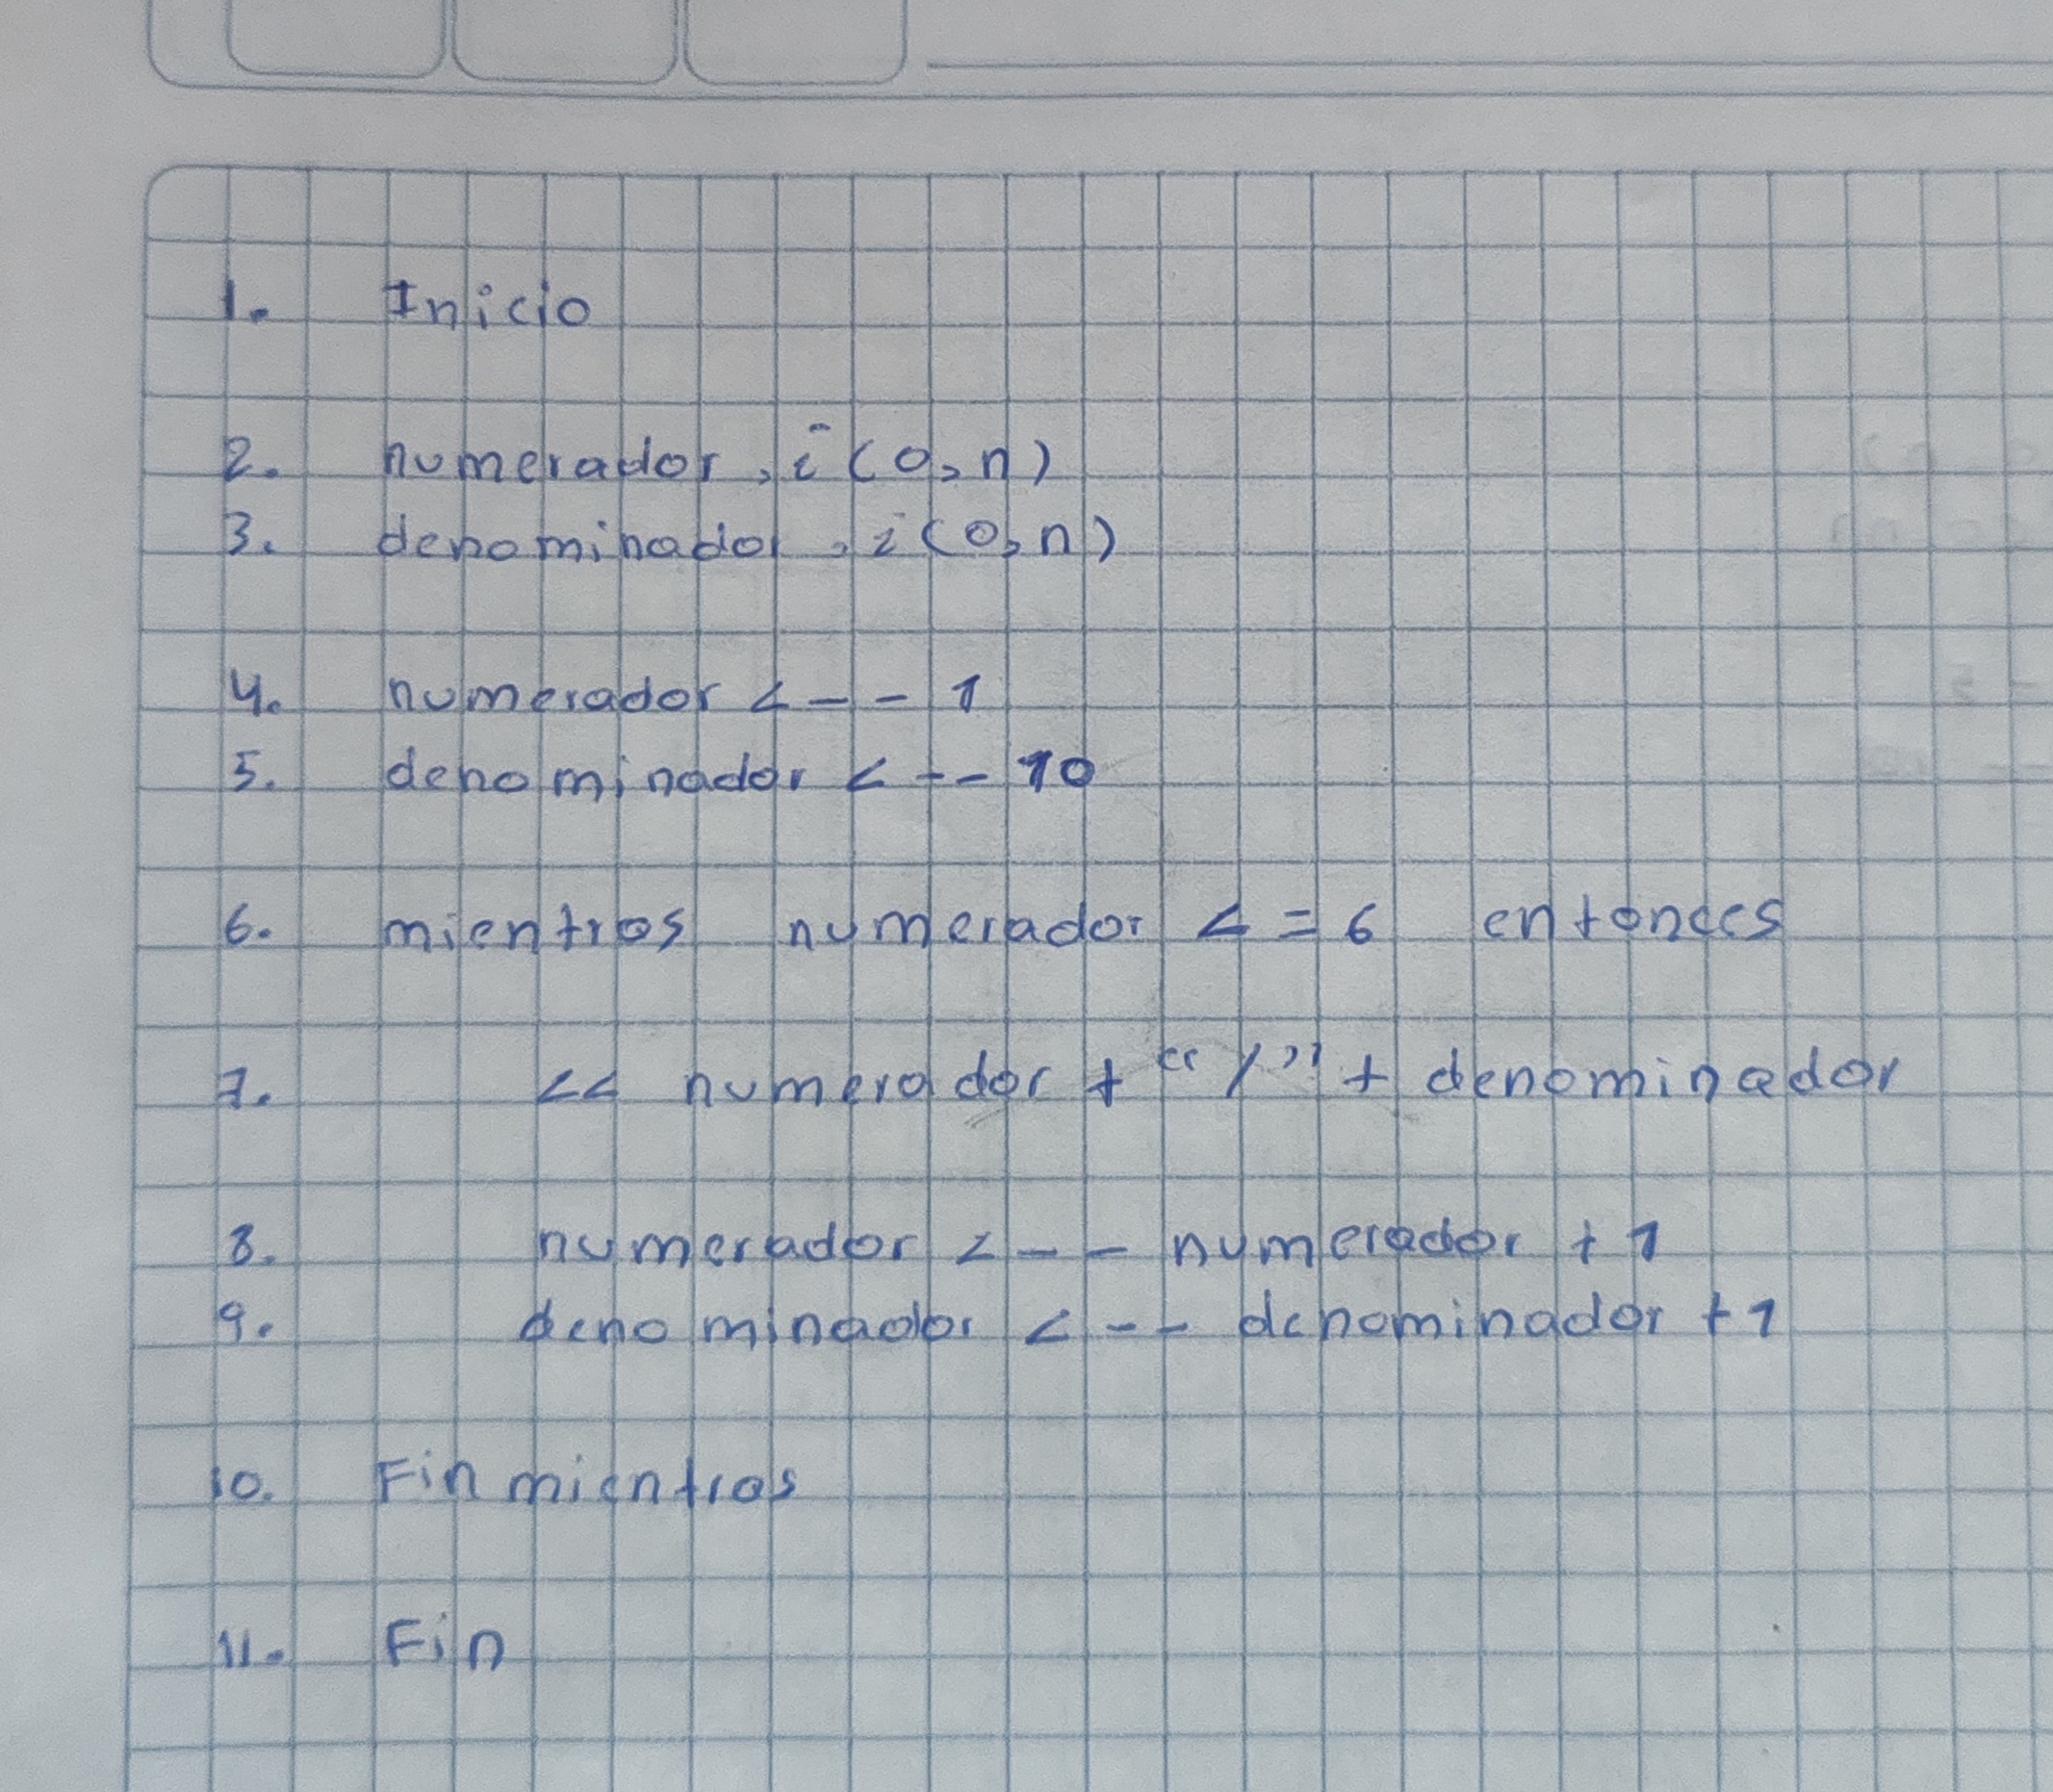 1. Inicio
2. numerador, i (0, n)
3. denominador, i (0, n)
4. numerador <-- 1
5. denominador <-- 10
6. mientras numerador <= 6 entonces
7. << numerador + “/” + denominador
8. numerador <-- numerador + 1
9. denominador <-- denominador + 1
10. Fin mientras
11. Fin